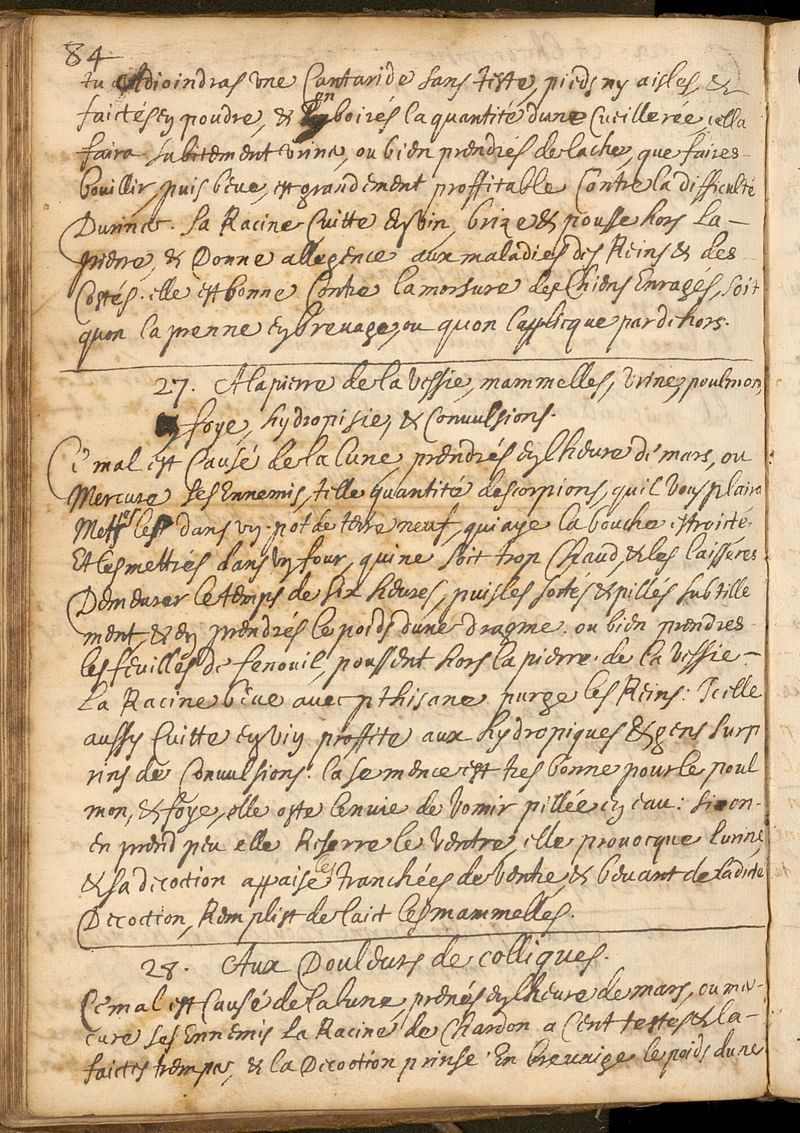 84
tu Adioindras vne Cantaride sans teste, pieds ny aisles, &
faictés en poudre, & en boirés la quantité dune Cueilleréе, cella
faira subitement vriner, ou bien prendrés de lache, que faires
bouillir, puis beue, est grandement proffitable Contre la difficulté
Durine. La Racine Cuitte en vin, brize & pousse hors La
pierre, & Donne allegence aux maladies des Reins & des
Costés. elle est bonne Contre lamorsure des Chiens Enragés, soit
quon la prenne en breuage, ou quon lapplicque par dehors.
27. A la pierre de la Vessie, mammelles, Vrine, poulmon,
foye, hydropisie, & Convulsions.
Ce mal est Causé de la lune, prendrés en lheure de mars, ou
Mercure ses Ennemis, telle quantité descorpions, quil vous plaira
Mettes les dans vn pot de terre neuf, qui aye la bouche estroicte
Et les mettrés dans vn four, qui ne soit trop Chaud, & les laissères
Demeurer le temps de six heures, puis les sortés & pillés subtille
ment, & en prendrés le poids dune dragme. ou bien prendres
les feuilles de fenouil, poussent hors la pierre de la Vessie
La Racine beue avec pthisane purge les Reins: Icelle
aussy Cuitte en vin proffite aux hydropiques & gens surp
rins de Convulsions. la semence est tres bonne pour le poul
mon, & foye, elle oste lenuie de vomir pillée en eau: si on
en prend peu elle Reserre le ventre, elle prouocque lurine,
& sa decoction appaise les tranchées de ventre, & beuant de ladicte
Decoction, Remplist de laict les mammelles.
28. Aux Douleurs de colliques.
Ce mal est Causé de la lune, prenés en lheure de mars, ou mer-
cure ses Ennemis La Racine de Chardon a Cent testes & la
faictes tremper, & la Decoction prinse En breuaige le poids dune